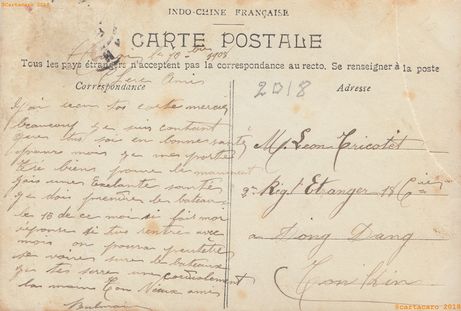 ©cartacaro 2018
INDO-CHINE FRANÇAISE
CARTE POSTALE
Tous les pays étrangers n'acceptent pas la correspondance au recto. Se renseigner à la poste
Correspondance
Adresse
2018
Chere Amis
J'ai recu ta carte merci
beaucoup je suis contant
que tu soi en bonne santé
pour moi je me porte
tré bien pour le moment
une santé
je dois prendre le bateau
le 18 de ce moi si fait moi
réponse si tu rentre avec
moi on poura peutetre
se voir sur le bateau
je te serre cordialement
la main Ton Vieux ami
Mr Leon Tricotet
2e Rigt Etranger 18 Cie
a Dong Dang
Tonkin
©cartacaro 2018